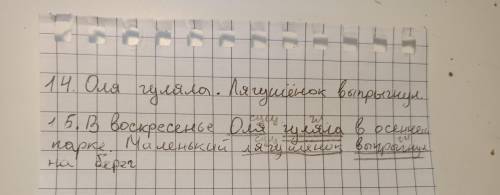 14. Оля гуляла. Лягушёнок выпрыгнул.
сущ гл
15. В воскресенье Оля гуляла в осеннем
сущ гл
парке. Маленький лягушёнок выпрыгнул
на берег